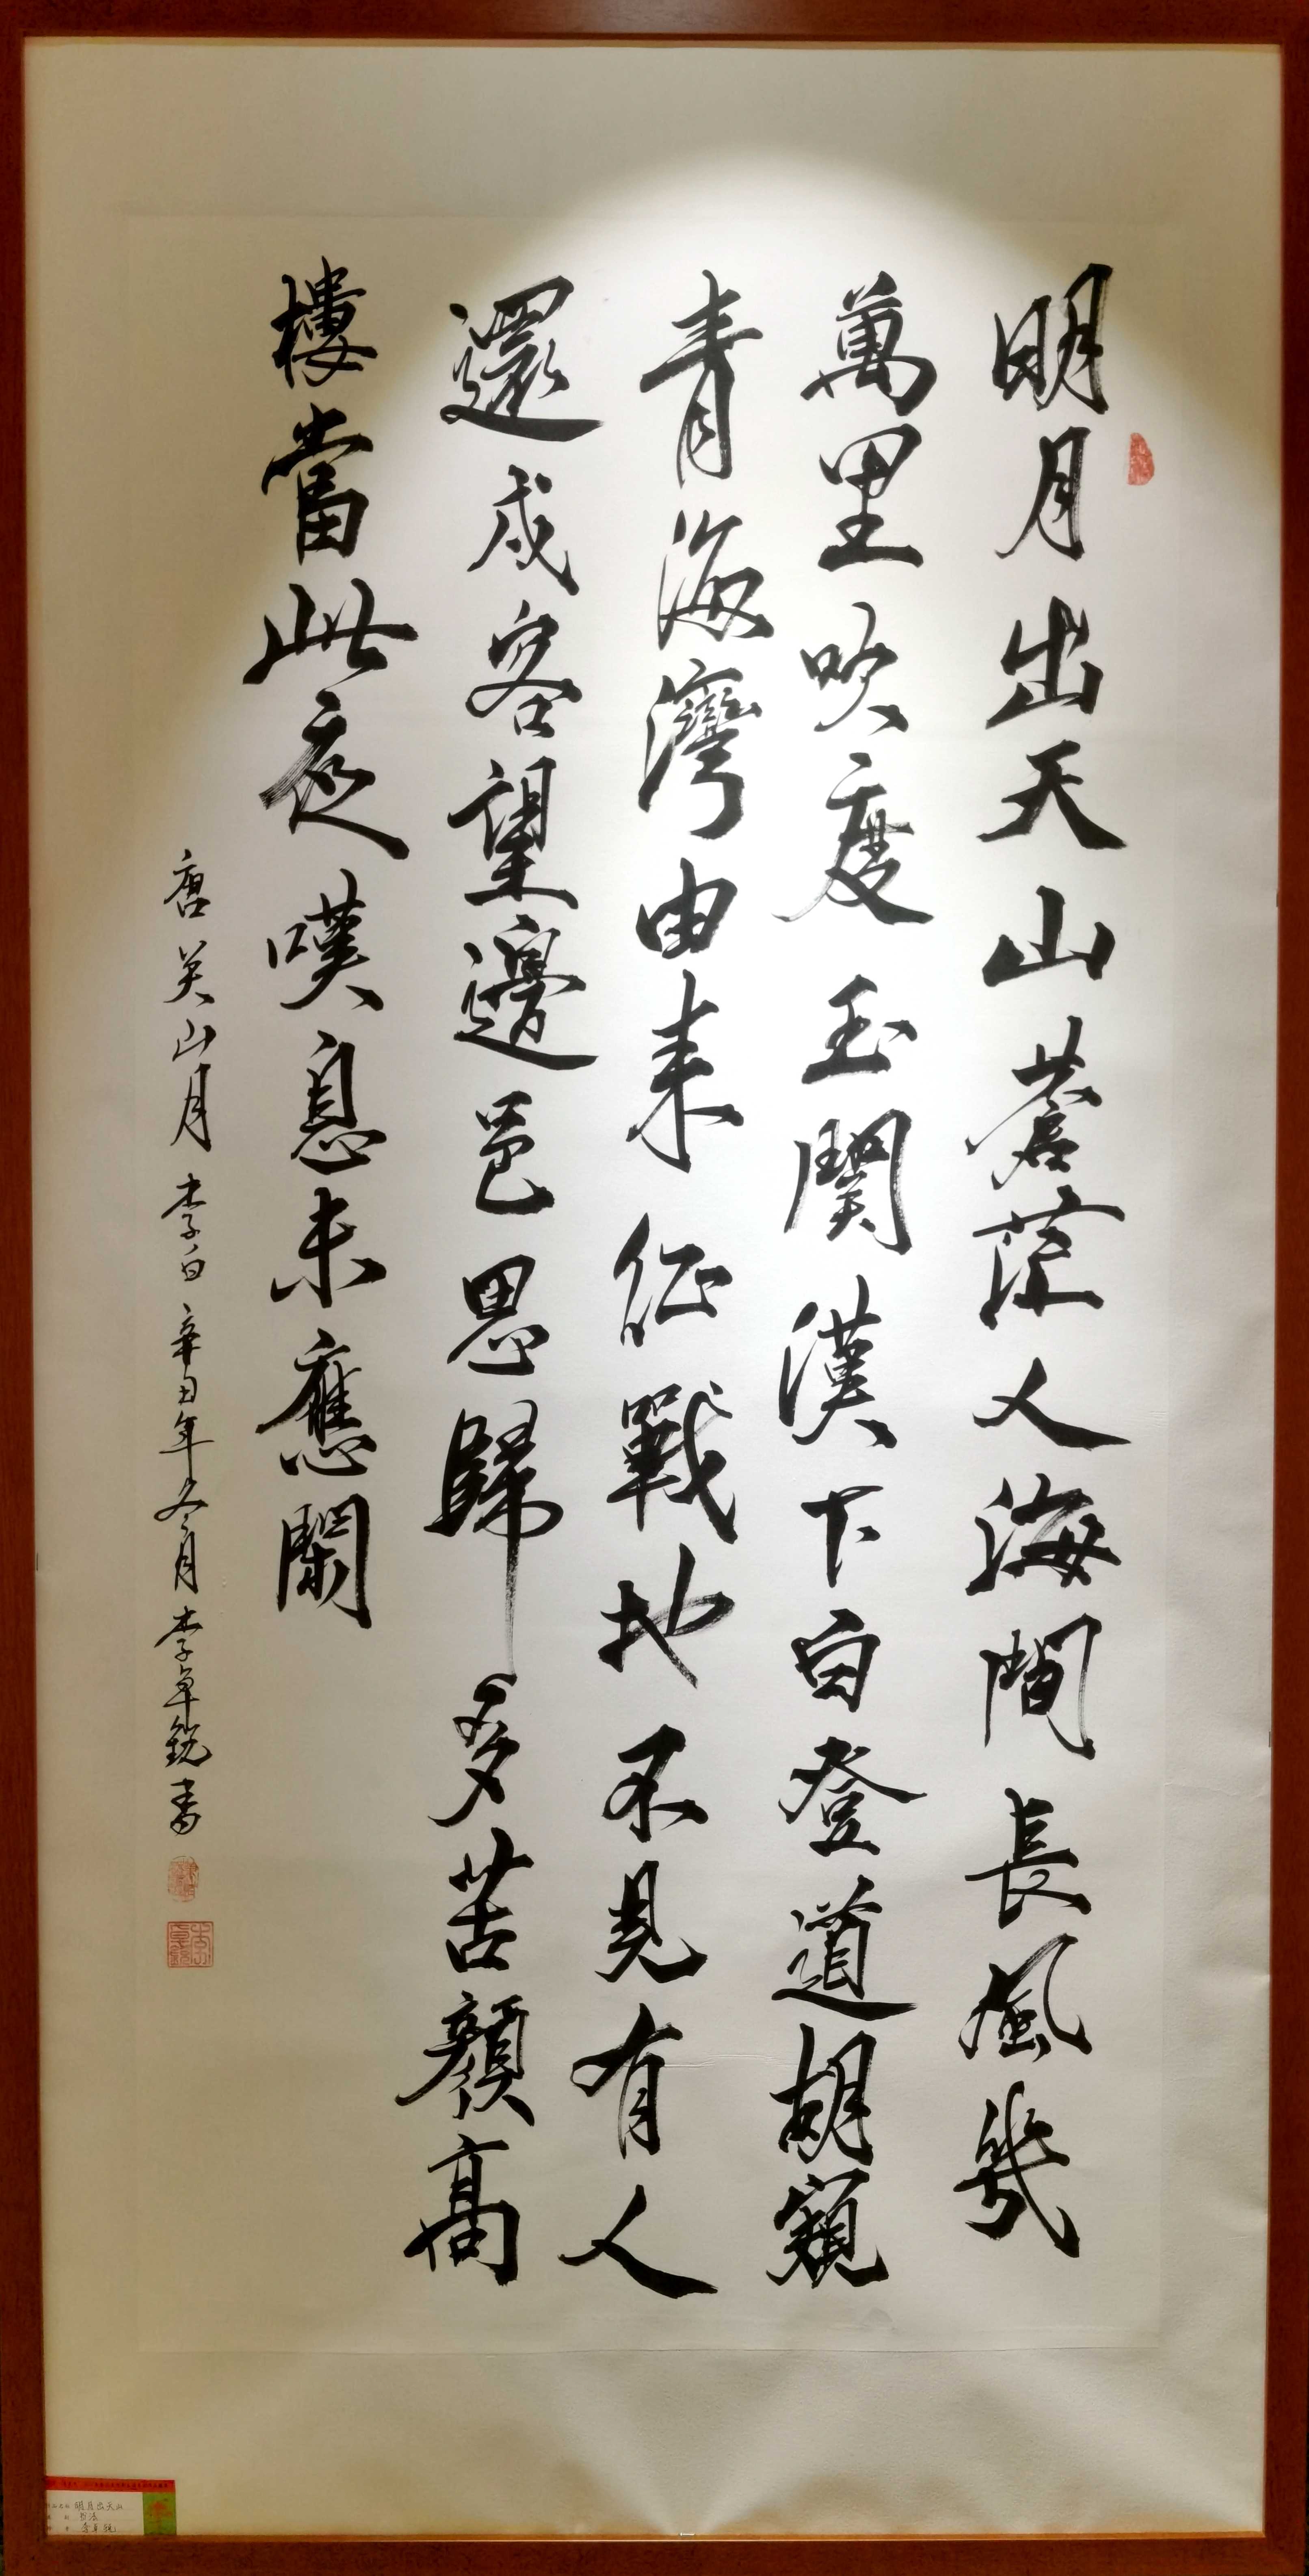 明月出天山蒼茫人海間長風幾
萬里吹度玉關漢下白登道胡窺
青海灣由來征戰地不見有人
還戍客望邊邑思歸多苦顏高
樓當此夜嘆息未應閑
唐关山月李白辛丑年冬月李卓銳書
明月出天山
书法
李卓锐